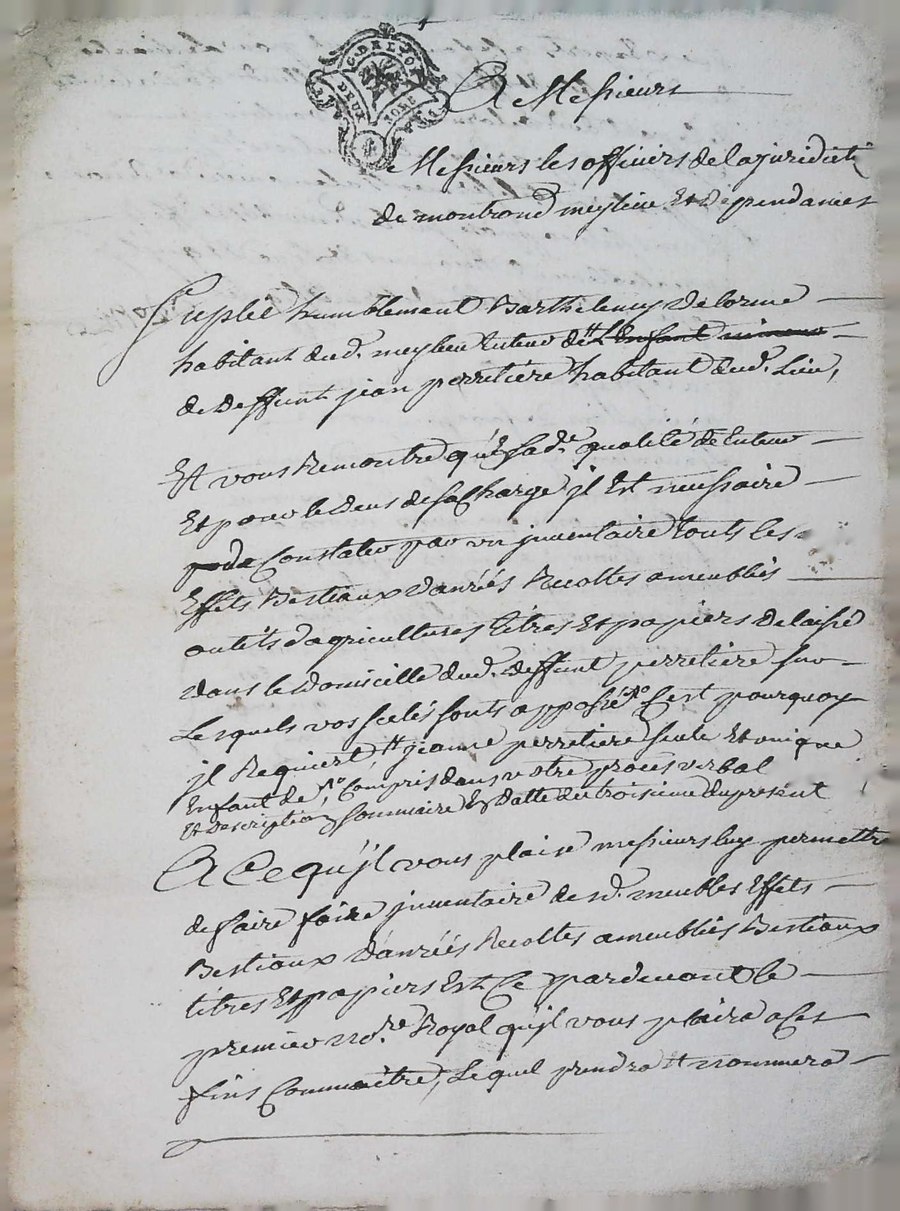 G. DE LYON
DEUX
A Messieurs
Messieurs les officiers de la juridict
de montrond meylieu Et dependances
Suplie humblement Barthelemy Delorme
habitant dud. meylieu tuteur de # L'Enfant mineur
de deffunt jean perretiere habitant dud. Lieu,
Et vous Remontre qu'En sa de. qualité de tuteur
Et pour le deus de sa Charge jl Est neessaire
Constater par un jnventaire touts les
Effets Bestiaux danréés Recoltes ameublies
outils d'agricultures titres Et papiers delaissé
dans le Domicille dud. deffunt perretiere sur
Lesquels vos scelés sonts apposée No C'est pourquoy
jl Requiert, # jeanne perretiere seule Et unique
Enfant de, No Compris dans votre proces verbal
Et description sommaire En datte du troisieme du present
A Ce qu'jl vous plaise messieurs luy permettre
de faire faire jnventaire desd. meubles Effets
Bestiaux danréés Recoltes ameublies Bestiaux
titres Et papiers Est Ce pardevant le
premier no.re Royal qu'jl vous plaira a Ces
fins Commettre, Lequel prendra Et nommera